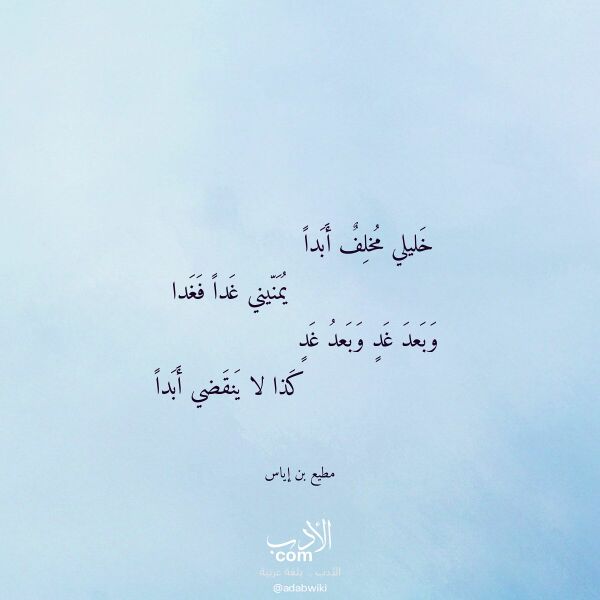 خَليلي مُخلِفٌ أَبَداً
يُمَنّيني غَداً فَغَدا
وَبَعدَ غَدٍ وَبَعدُ غَدٍ
كَذا لا يَنقَضي أَبَداً
مطيع بن إياس
الأدب
com
الأدب .. بلغة عربية
@adabwiki